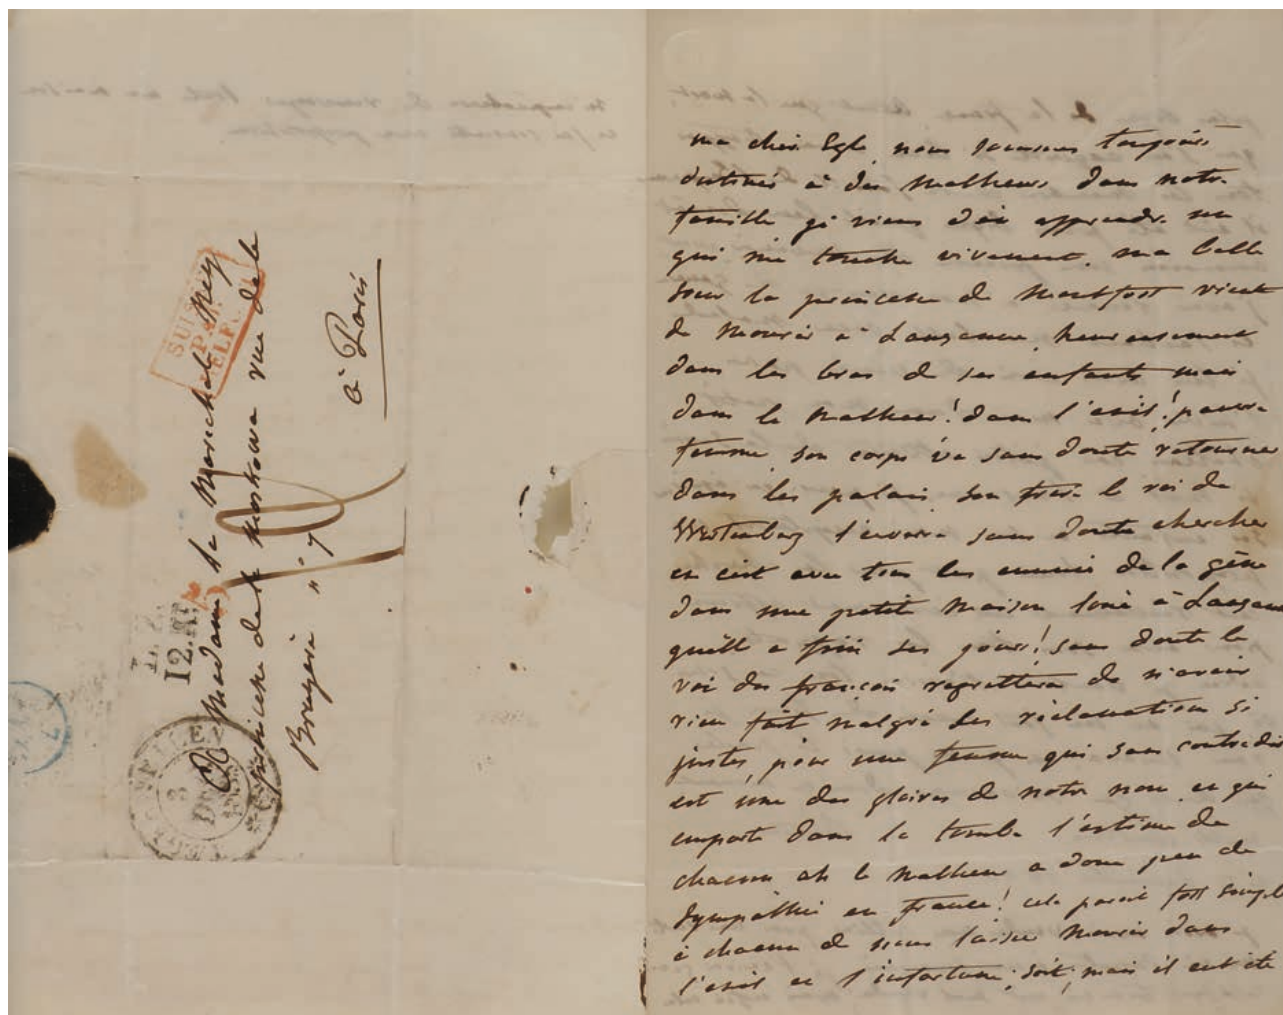 Madame la Marechale Ney
princesse de la Moskowa rue de la
Bruyere n° 7
à Paris
SUI
PAR
BELF
L.
12.K
ma cher Egle, nous sommes toujours
destinés à des malheurs dans notre
famille gé viens d'en apprendre un
qui me touche vivement, ma belle
sœur la princesse de Montfort vient
de mourir à Lausanne, heureusement
dans les bras de ses enfants mais
dans le malheur! dans l'exil! pauvre
femme, son corps va sans doute retourner
dans les palais, son frere le roi de
Wurtemberg l'envera sans doute chercher
et c'est avec tous les ennuis de la gêne
dans une petite maison loué à Lausanne
quelle a fini ses jours! sans doute le
roi des français regrettera de n'avoir
rien fait malgré des réclamations si
justes, pour une femme qui sans contredit
est une des gloires de notre nom, et qui
emporte dans la tombe l'estime de
chacun ah le malheur a donc peu de
sympathie en france! cela parait fort simple
à chacun de nous laisser mourir dans
l'exil et l'infortune, soit, mais il eut été